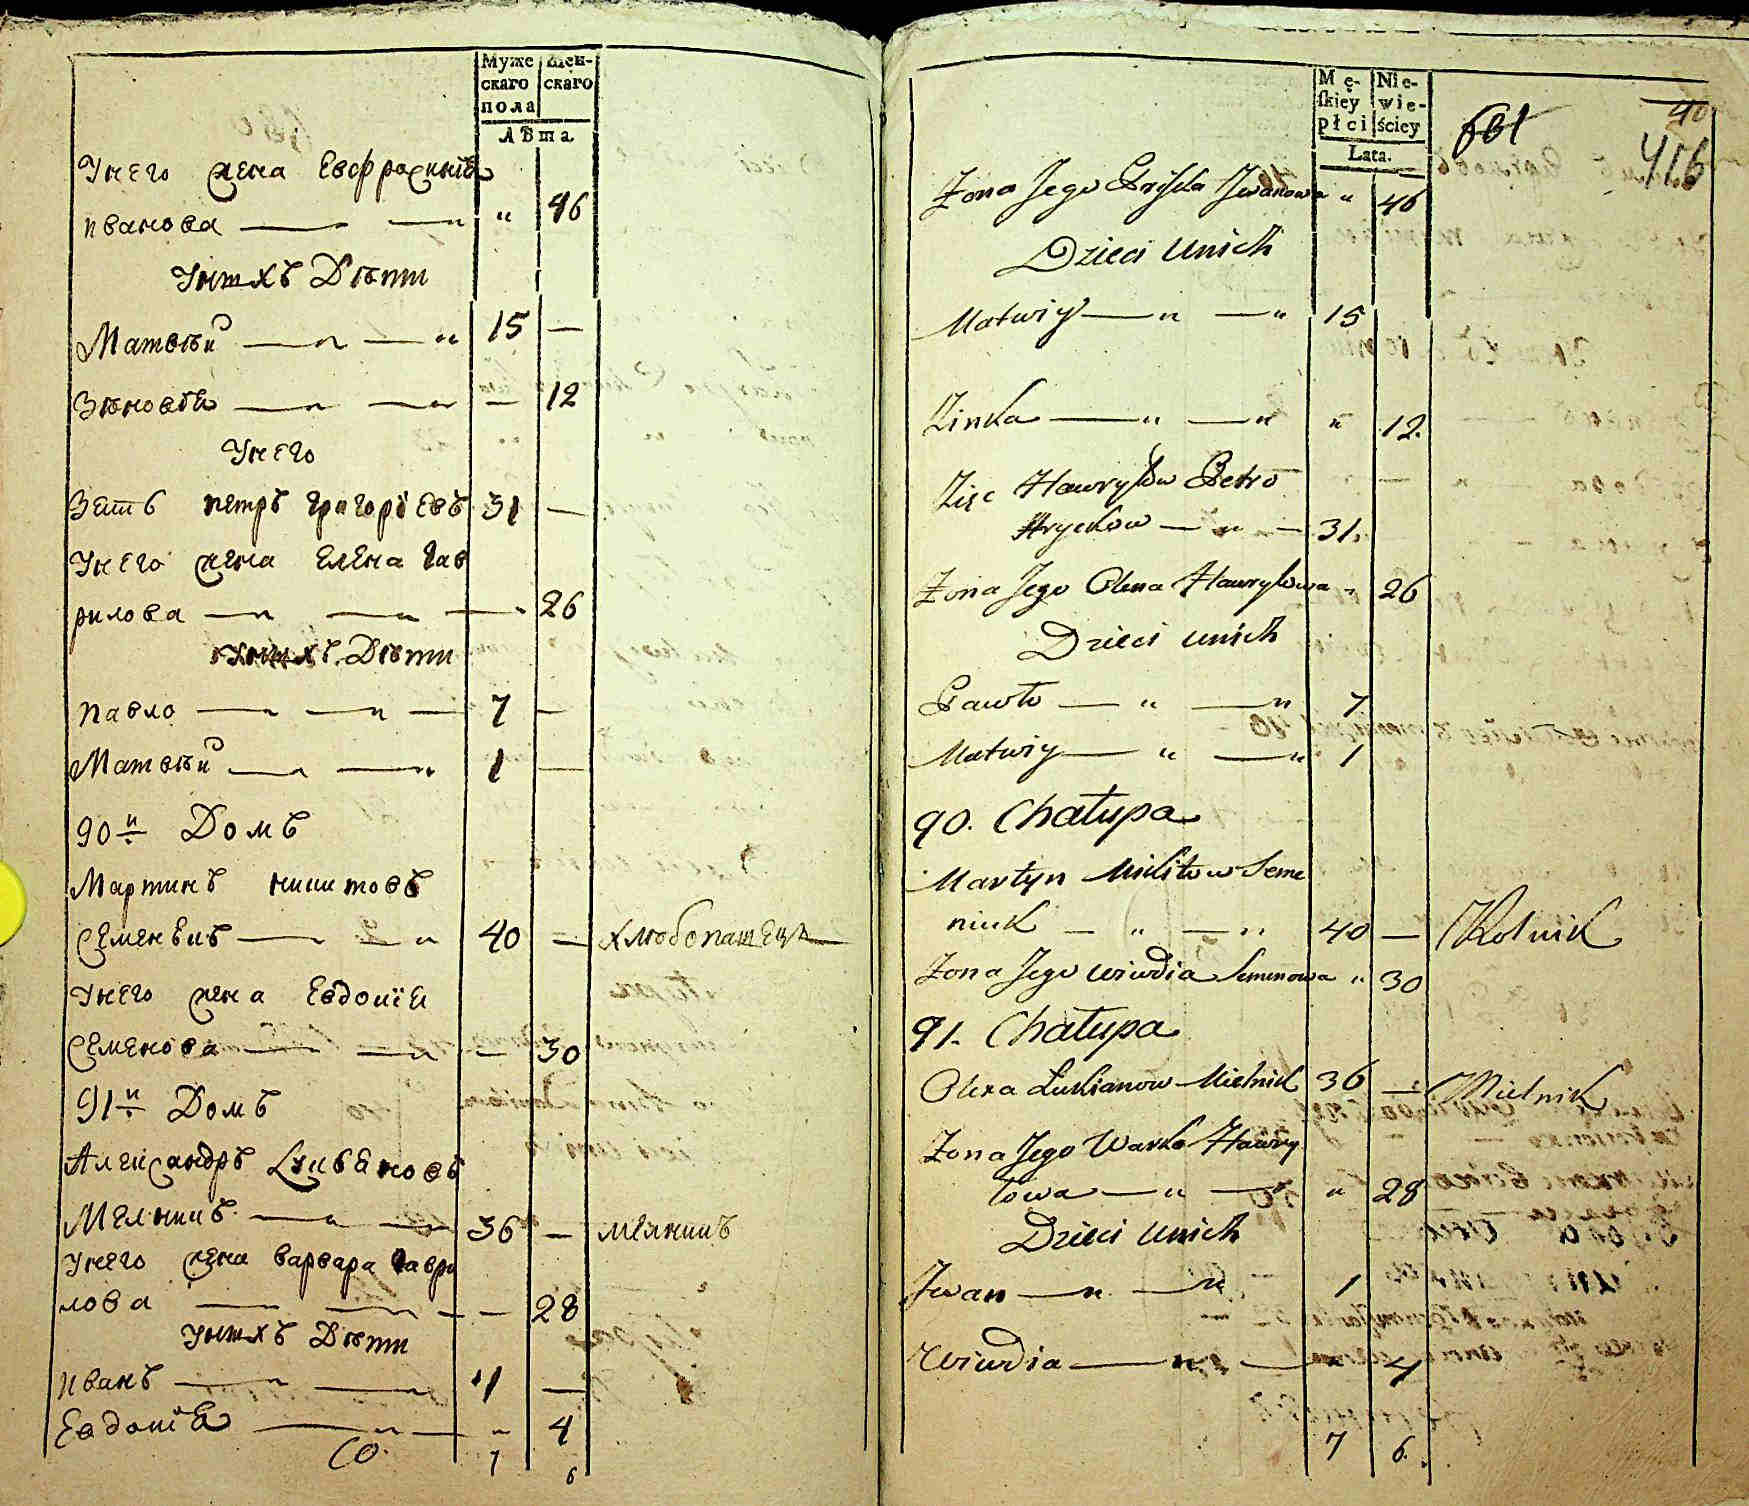 Муже
скаго
пола
Жен-
скаго
Лѣта
Унего жена Евфросинія
иванова — — " 46
Унихъ Дѣти
Матвѣй — " — " 15 —
Зѣновія — " — " — 12
Унего
Зять петръ григоріевъ 31 —
Унего жена Елена гав
рилова — " — " — " 26
Унихъ Дѣти
павло — " — " — 7 —
Матвѣй — " — " 1 —
90й Домъ
Мартинъ никитовъ
Семенюкъ — " — " 40 — хлѣбопашецъ
Унего жена Евдокія
Семенова — " — " — 30
91й Домъ
Александръ Лукьяновъ
Мелникъ — " — " 36 — мелникъ
Унего жена варвара гаври
лова — " — " — 28
Унихъ Дѣти
иванъ — " — " 1 —
Евдокія — " — " 4
7 6
Mę-
ſkiey
płci
Nie-
wie-
ściey
Lata.
681
40
416
Żona Jego Priska Jwanowa " 46
Dzieci Unich
Matwiy — " — " 15
Zinka — " — " " 12.
Zięc Hawryłow Petro
Hryckow — " — 31.
Żona Jego Olena Hawryłowa " 26
Dzieci unich
Pawło — " — " 7
Matwiy — " — " 1
90. Chałupa
Martyn Mikitow Seme
niuk — " — " 40 — Rolnik
Żona Jego Wiwdia Semenowa " 30
91. Chałupa
Olexa Lukianow Mielnik 36 — Mielnik
Żona Jego Warka Hawry
łowa — " — " 28
Dzieci Unich
Jwan — " — " 1
Wiwdia — " — " 4
7 6.